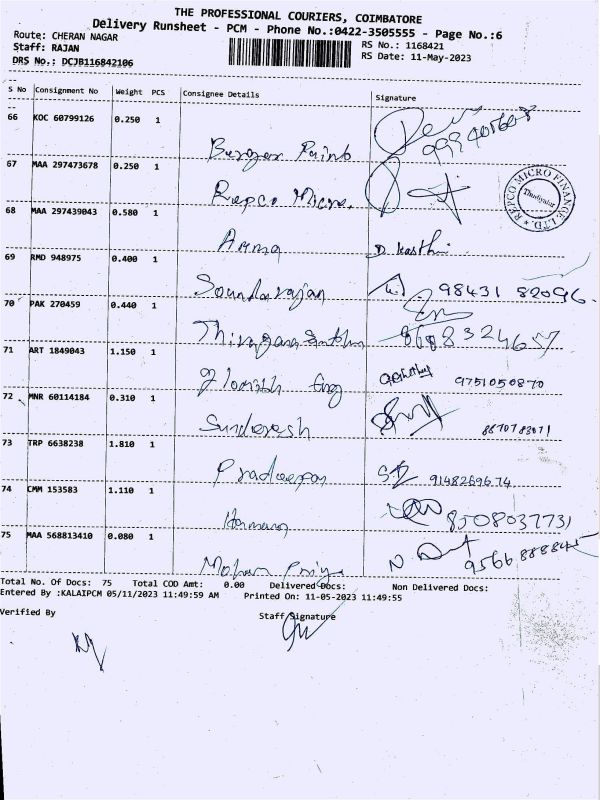 THE PROFESSIONAL COURIERS, COIMBATORE
Delivery Runsheet - PCM - Phone No.:0422-3505555 - Page No.:6
Route: CHERAN NAGAR
RS No.: 1168421
Staff: RAJAN
RS Date: 11-May-2023
DRS No.: DCJB116842106
S No Consignment No Weight PCS Consignee Details Signature
66 KOC 60799126 0.250 1
Berger Paint
67 MAA 297473678 0.250 1
Repco Micro.
REPCO MICRO FINANCE LTD.
68 MAA 297439043 0.580 1
Amma D. Kasthuri
69 RMD 948975 0.400 1
Soundarajan 98431 82096.
70 PAK 270459 0.440 1
8688324657
71 ART 1849043 1.150 1
Eng 9751050870
72 MNR 60114184 0.310 1
Sunderesh
73 TRP 6638238 1.810 1
9148269674
74 CMM 153583 1.110 1
8508037731
75 MAA 568813410 0.080 1
Mohan Priya 9566888845
Total No. Of Docs: 75 Total COD Amt: 0.00 Delivered Docs: Non Delivered Docs:
Entered By :KALAIPCM 05/11/2023 11:49:59 AM Printed On: 11-05-2023 11:49:55
Verified By Staff Signature